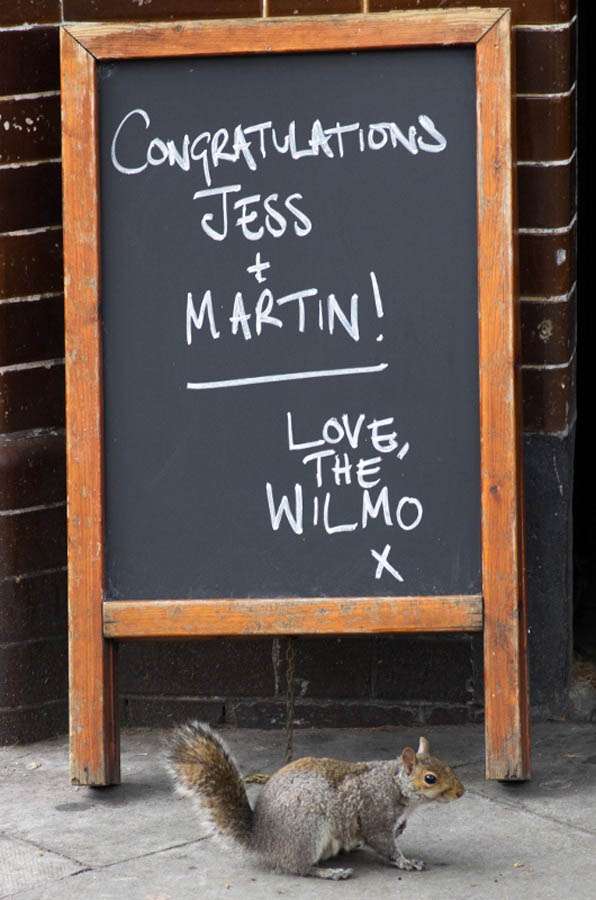 CONGRATULATIONS
JESS
+
MARTIN!
LOVE,
THE
WILMO
X